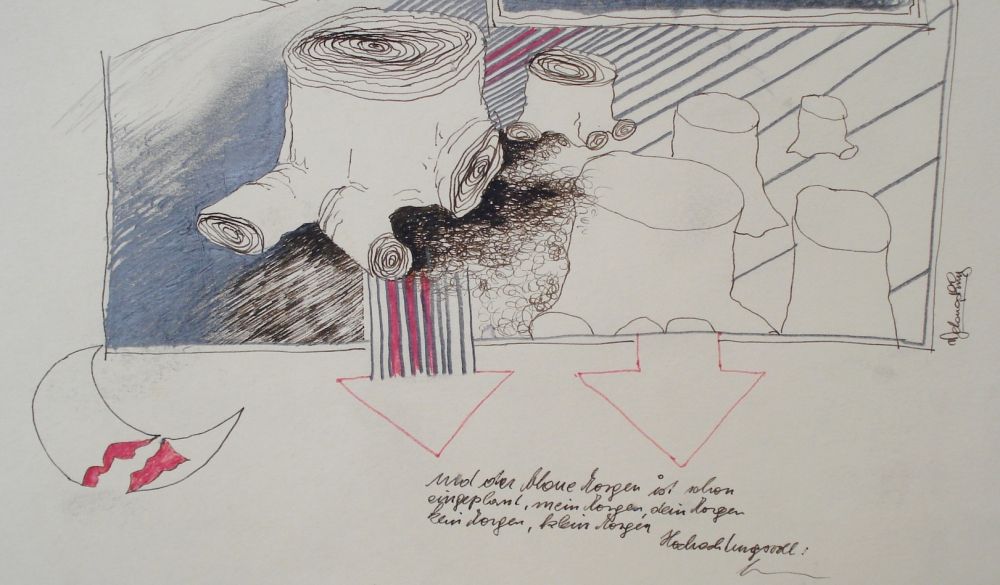 und der blaue Morgen ist schon
eingeplant, mein Morgen, dein Morgen
kein Morgen, klein Morgen
Hochachtungsvoll: